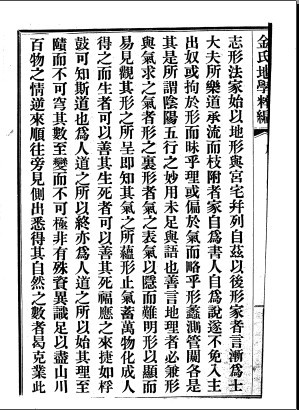 金氏地學粹編
志形法家始以地形與宮宅幷列自茲以後形家者言漸爲士
大夫所樂道承流而枝附者家自爲書人自爲說遂不免入主
出奴或拘於形而昧乎理或偏於氣而略乎形蠡測管闚各是
其是所謂陰陽五行之妙用未足與語也善言地理者必兼形
與氣求之氣者形之裏形者氣之表氣以隱而難明形以顯而
易見觀其形之所呈即知其氣之所蘊形止氣蓄萬物化成人
得之而生者可以善其生死者可以善其死福應之來捷如桴
鼓可知斯道也爲人道之所以終亦爲人道之所以始其理至
賾而不可窮其數至變而不可極非有殊資異識足以盡山川
百物之情逆來順往旁見側出悉得其自然之數者曷克業此